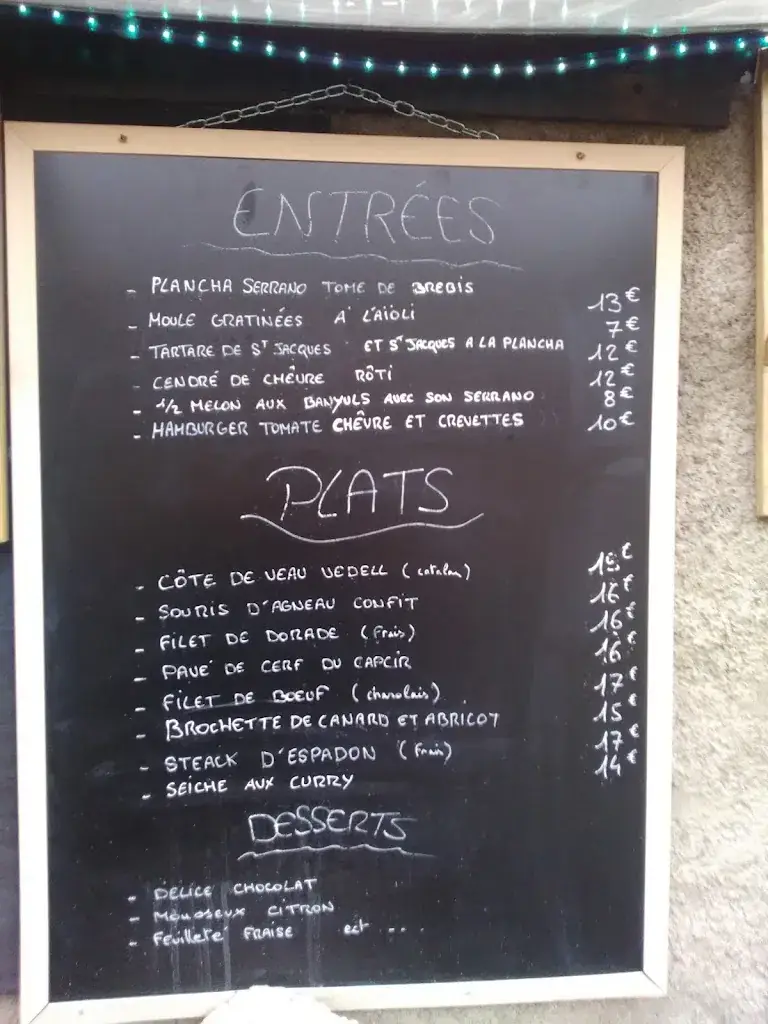 ENTRÉES
- PLANCHA SERRANO TOME DE BREBIS 13€
- MOULE GRATINÉES A' L'AÏOLI 7€
- TARTARE DE ST JACQUES ET ST JACQUES A LA PLANCHA 12€
- CENDRÉ DE CHÊVRE RÔTI 12€
- 1/2 MELON AUX BANYULS AVEC SON SERRANO 8€
- HAMBURGER TOMATE CHÊVRE ET CREVETTES 10€
PLATS
- CÔTE DE VEAU VEDELL (catalan) 15€
- SOURIS D'AGNEAU CONFIT 16€
- FILET DE DORADE (frais) 16€
- PAVÉ DE CERF DU CAPCIR 16€
- FILET DE BOEUF (charolais) 17€
- BROCHETTE DE CANARD ET ABRICOT 15€
- STEACK D'ESPADON (frais) 17€
- SEICHE AUX CURRY 14€
DESSERTS
- DELICE CHOCOLAT
- MOELLEUX CITRON
- FEUILLETÉ FRAISE ect ...